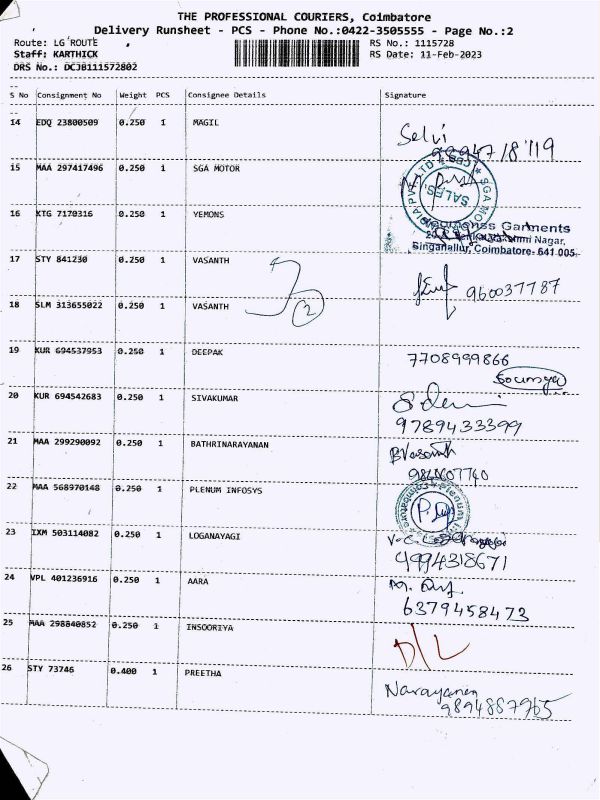 THE PROFESSIONAL COURIERS, Coimbatore
Delivery Runsheet - PCS - Phone No.:0422-3505555 - Page No.:2
Route: LG ROUTE RS No.: 1115728
Staff: KARTHICK RS Date: 11-Feb-2023
DRS No.: DCJB111572802
S No Consignment No Weight PCS Consignee Details Signature
14 EDQ 23800509 0.250 1 MAGIL Selvi
15 MAA 297417496 0.250 1 SGA MOTOR
SALES
16 KTG 7170316 0.250 1 YEMONS
Garments
Nagar,
Singanallur, Coimbatore- 641 005.
17 STY 841230 0.250 1 VASANTH 960037787
18 SLM 313655022 0.250 1 VASANTH 2
19 KUR 694537953 0.250 1 DEEPAK 7708999866
Soumya
20 KUR 694542683 0.250 1 SIVAKUMAR
9789433399
21 MAA 299290092 0.250 1 BATHRINARAYANAN BVasanth
22 MAA 568970148 0.250 1 PLENUM INFOSYS
23 IXM 503114082 0.250 1 LOGANAYAGI
4994318671
24 VPL 401236916 0.250 1 AARA
6379458473
25 MAA 298840852 0.250 1 INSOORIYA D/L
26 STY 73746 0.400 1 PREETHA Narayanan
9894887965